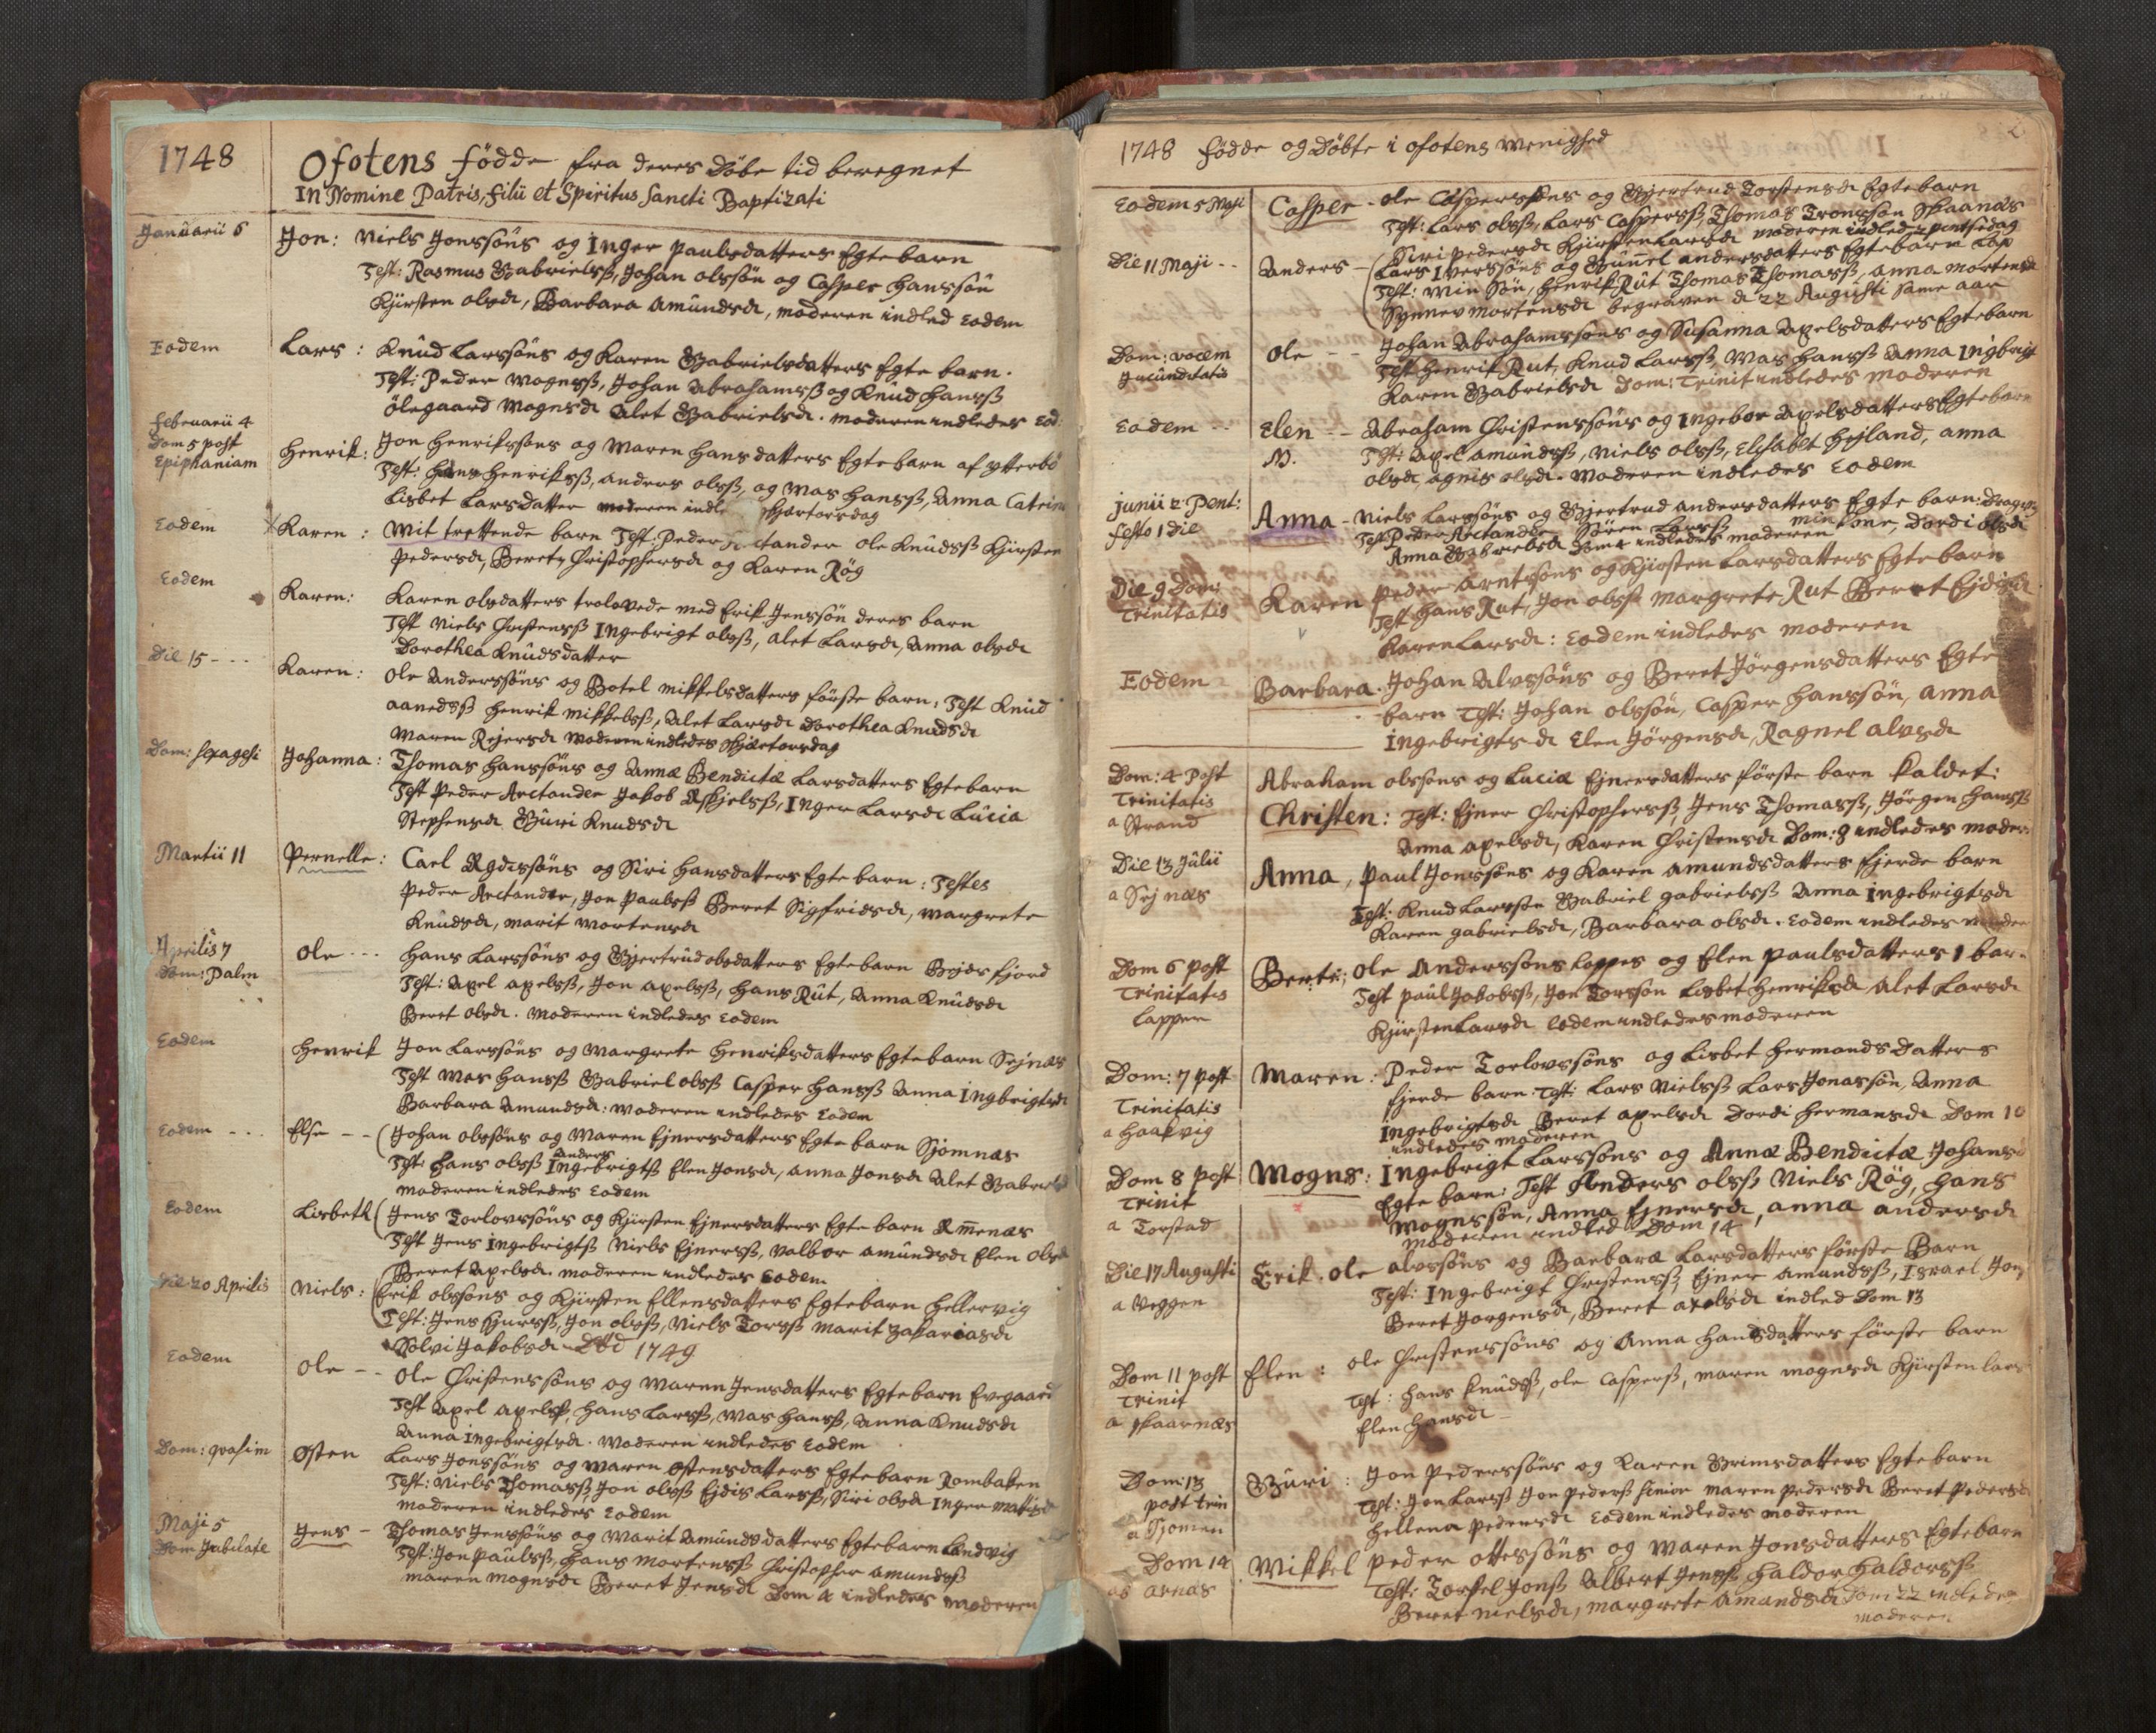 1748
Ofotens födde fra deres Döbe tid beregnet
In Nomine Patris, Filii et Spiritus Sancti Baptizati
Januarii 6
Jon: Niels Jonssöns og Inger Paulsdatters Egtebarn
Test: Rasmus Gabrielsß, Johan olssön og Casper Hanssön
Kjirsten olsdr, Barbara Amundsdr, moderen indled Eodem
Eodem
Lars: Knud Larssöns og Karen Gabrielsdatters Egte barn.
Test: Peder Mognsß, Johan Abrahamsß og Knud Hansß
ölegaard Mognsdr Alet Gabrielsdr. moderen indledes Eod:
Februarii 4
Dom 5 post
Epiphaniam
Henrik: Jon Henrikssöns og Maren Hansdatters Egtebarn af ytterbö
Test: Hans Henriksß, Anders olsß, og Mas Hansß, Anna Catrina
Lisbet Larsdatter moderen indle skjertorsdag
Eodem
Karen: Mit trettende barn Test: Peder Arctander ole Knudsß Kjirsten
Pedersdr, Beret Christophersdr og Karen Røg
Eodem
Karen: Karen olsdatters trolovede med Erik Jenssön deres barn
Test Niels Christensß Ingebrigt olsß, Alet Larsdr, Anna olsdr
Dorothea Knudsdatter
Die 15 - - -
Karen: Ole Anderssöns og Botel Mikkelsdatters förste barn: Test Knud
aanedsß Henrik Mikkelsß, Alet Larsdr Dorothea Knudsdr
Maren Rejersdr Moderen indledes skjærtorsdag
Dom: Sexagesi
Johanna: Thomas Hanssöns og Annæ Bendictæ Larsdatters Egtebarn
Test Peder Arctander Jakob Askjelsß, Inger Larsdr Lucia
Stephensdr Guri Knudsdr
Martii 11
Pernelle: Carl Ryderssöns og Siri Hansdatters Egtebarn: Testes
Peder Arctander, Jon Paulsß Beret Sigfridsdr, Margrete
Knudsdr, Marit Mortensdr
Aprilis 7
Dom: Palm
Ole - - - Hans Larssöns og Gjertrud olsdatters Egtebarn Bojersfjord
Test: Axel Axelsß, Jon Axelsß, Hans Rut, Anna Knudsdr
Beret olsdr. Moderen indledes Eodem
Eodem
Henrik Jon Larssöns og Margrete Henriksdatters Egtebarn Sejnæs
Test Mas Hansß Gabriel olsß Casper Hansß Anna Ingbrigtsdr
Barbara Amundsdr: Moderen indledes Eodem
Eodem - - -
Else - - Johan olssöns og Maren Ejnersdatters Egte barn Sjomnæs
Anders
Test: Hans olsß Ingebrigtß Elen Jonsdr, Anna Jonsdr Alet Gabrielsd
moderen indledes Eodem
Eodem
Lisbeth Jens Torlovssöns og Kjirsten Ejnersdatters Egte barn Ræmenæs
Test Jens Ingebrigtß Niels Ejnersß, Valbor Amundsdr Elen olsdr
Beret Axelsdr. moderen indledes Eodem
Die 20 Aprilis
Niels: Erik olssöns og Kjirsten Ellensdatters Egtebarn Hellervig
Test: Jens Sjursß, Jon olsß, Niels Torsß Marit Zakariasdr
Solvi Jakobsdr Död 1749
Eodem
Ole - - Ole Christenssöns og Maren Jensdatters Egtebarn Evegaard
Test Axel Axelsß, Hans Larsß, Mas Hansß, Anna Knudsdr
Anna Ingebrigtsdr. Moderen indledes Eodem
Dom: quasim
Østen Lars Jonssöns og Maren Østensdatters Egtebarn Rombaken
Test: Niels Thomasß, Jon olsß Ejdis Larsß, Siri olsdr Inger Mattisdr
moderen indledes Eodem
Maji 5
Dom Jubilate
Jens - Thomas Jenssöns og Marit Amundsdatters Egtebarn Landvig
Test: Jon Paulsß, Hans Mortensß Christopher Amundsß
Maren Mognsdr Beret Jensdr Dom 4 indledes Moderen
2
1748 födde og Döbte i ofotens Menighed
Eodem 5 Maji
Casper - Ole Casperssöns og Gjertrud Torstensdr Egtebarn
Test: Lars olsß, Lars Caspersß, Thomas Tronssøn Skaanæs
Siri Pedersdr Kjirsten Larsdr moderen indled 2 pintsedag
Die 11 Maji - -
Anders - Lars Iverssöns og Gunnel Andersdatters Egtebarn Lap
Test: Min Sön, Henrik Rut Thomas Thomasß, Anna Mortensdr
Synnev Mortensdr begraven d 22 Augusti Same aar
Dom: vocem
Jucunditatis
Ole - - Johan Abrahamssöns og Susanna Axelsdatters Egtebarn
Test Henrik Rut, Knud Larsß, Mas Hansß Anna Ingbrigt
Karen Gabrielsdr Dom: Trinit indledes Moderen
Eodem - -
Elen - - Abraham Christenssöns og Ingebor Axelsdatters Egtebarn
N. Test: Axel Amundsß, Niels olsß, Elisabet Hejland, Anna
olsdr Agnis olsdr. Moderen indledes Eodem
Junii 2 Pent:
festo 1 die
Anna - Niels Larssöns og Gjertrud Andersdatters Egte barn: Dragvig
Test Peder Arctander Sören Larsß min kone, Dordi olsdr
Anna Gabrielsdr Dom 4 indledes moderen
Die 9 Dom:
Trinitatis
Karen Peder Arntssöns og Kjirsten Larsdatters Egtebarn
Test Hans Rut, Jon olsß Margrete Rut Beret Ejdisdr
Karen Larsdr: Eodem indledes moderen
Eodem
Barbara. Johan Alvssöns og Beret Jörgensdatters Egte
barn Test: Johan olssön, Casper Hanssön, Anna
Ingebrigtsdr Elen Jörgensdr, Ragnel Alvsdr
Dom: 4 Post
Trinitatis
a Strand
Abraham olssöns og Luciæ Ejnersdatters förste barn kaldet:
Christen: Test: Ejner Christophersß, Jens Thomasß, Jörgen Hansß
Anna Axelsdr, Karen Christensdr Dom: 8 indledes moder:
Die 13 Julii
a Sejnæs
Anna, Paul Jonssöns og Karen Amundsdatters fjerde barn
Test: Knud Larssøn Gabriel Gabrielsß Anna Ingebrigtsdr
Karen Gabrielsdr, Barbara olsdr. Eodem indledes moder
Dom 6 post
Trinitatis
Lapper
Berte: Ole Anderssöns Lappes og Elen Paulsdatters 1 bar.
Test Paul Jakobsß, Jon Torssön Lisbet Henriksdr Alet Larsdr
Kjirsten Larsdr Eodem indledes moderen
Dom: 7 post
Trinitatis
a Haakvig
Maren: Peder Torlovssöns og Lisbet Hermands Datters
fjerde barn. Test: Lars Nielsß Lars Jonassön, Anna
Ingebrigtsdr Beret Axelsdr Dordi Hermansdr Dom 10
indledes moderen
Dom 8 post
Trinit
a Torstad
Mogns: Ingebrigt Larssöns og Annæ Bendictæ Johansd
Egte barn: Test Anders olsß Niels Røg, Hans
Mognssön, Anna Ejnersdr, Anna Andersdr
moderen indled Dom 14
Die 17 Augusti
a Veggen
Erik. Ole Alvssöns og Barbaræ Larsdatters förste Barn
Test: Ingebrigt Christensß, Ejner Amundsß, Israel Jonß
Beret Jorgensdr, Beret Axelsdr indled Dom 13
Dom 11 post
Trinit
a Skaarnæs
Elen: Ole Christenssöns og Anna Hansdatters förste barn
Test: Hans Knudsß, ole Caspersß, Maren Mognsdr Kjirsten Lars
Elen Hansdr -
Dom: 13
post trin
a Sjomen
Guri: Jon Pederssöns og Karen Grimsdatters Egtebarn
Test: Jon Larsß Jon Pedersß Senior Maren Pedersdr Beret Pedersdr
Hellena Pedersdr Eodem indledes moderen
Dom 14
ad arnæs
Mikkel Peder ottessöns og Maren Jonsdatters Egtebarn
Test: Torkel Jonsß Albert Jensß Haldor Haldorsß
Beret Nielsdr, Margrete Amundsdr Dom 22 indledes
moderen